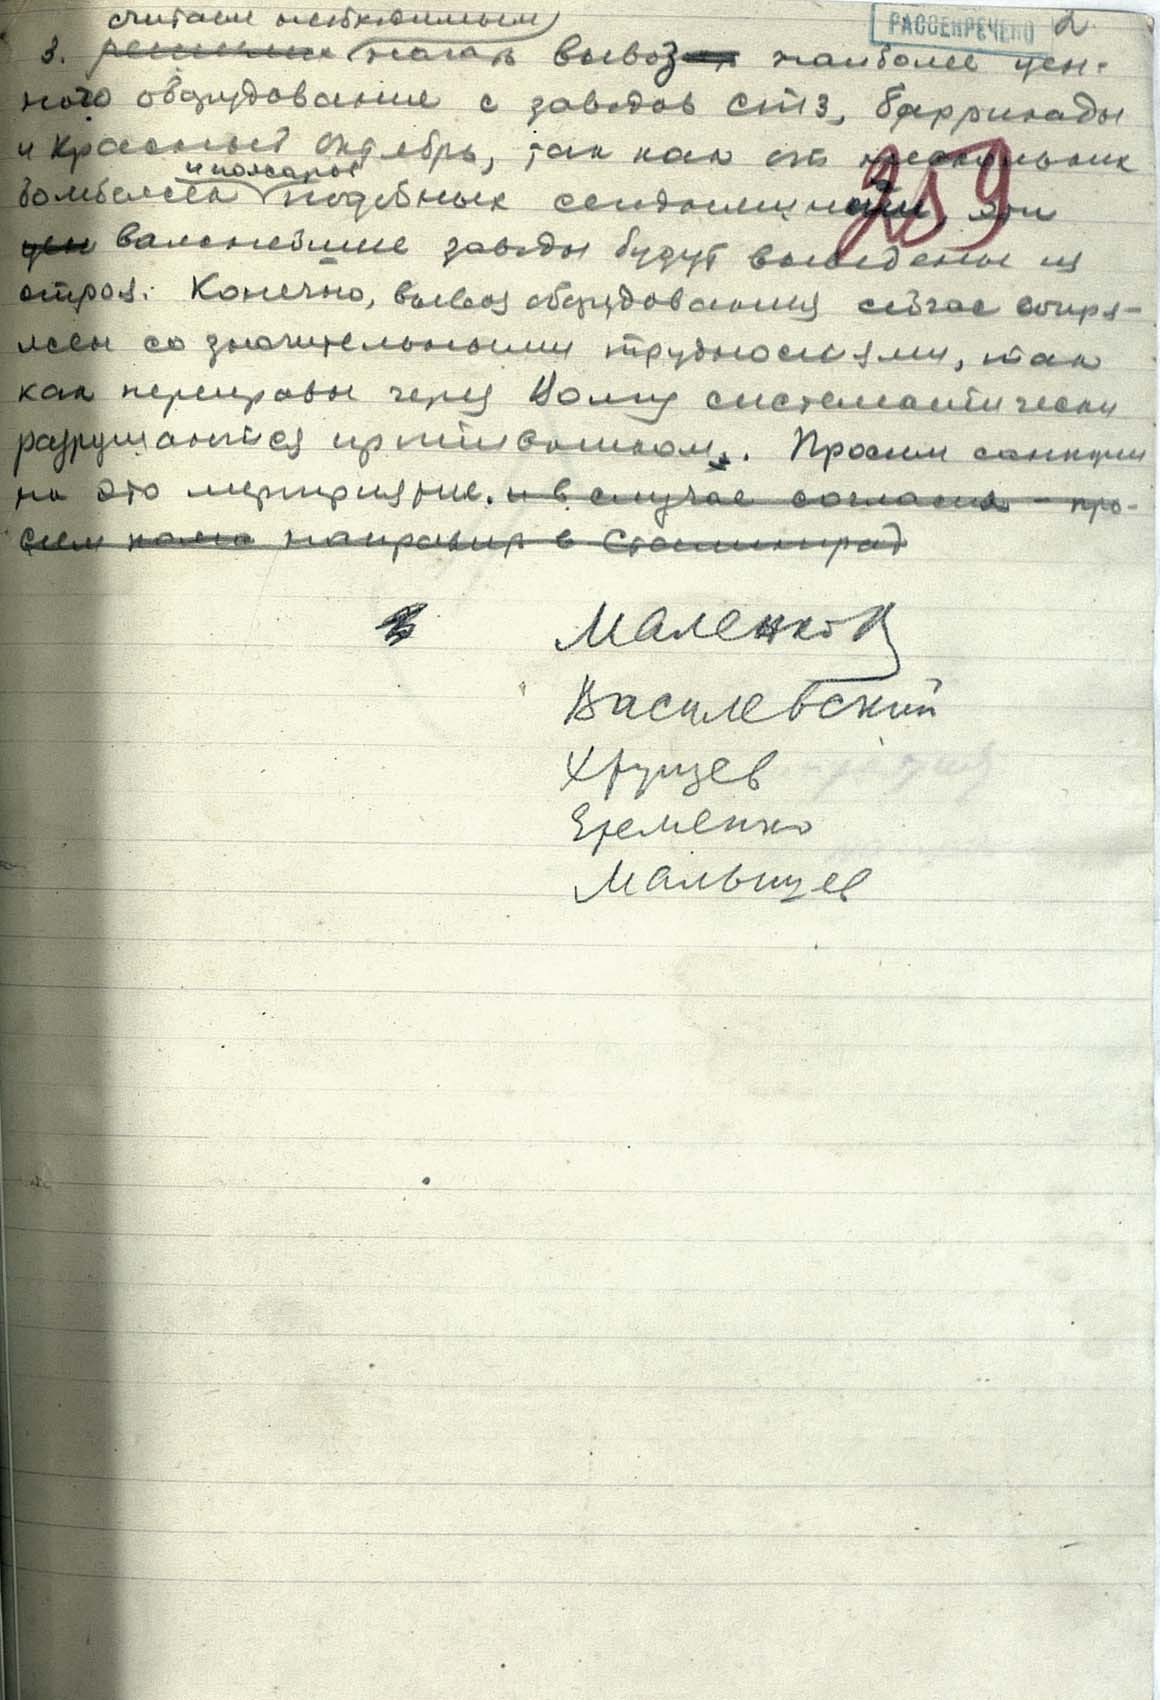 РАССЕКРЕЧЕНО
2
считаем необходимым
3. решили начать вывоз наиболее цен-
ного оборудование с заводов СТЗ, Баррикады
и Красный Октябрь, так как от нескольких
259
и пожаров
бомбежек подобных сегодняшней, эти
цен важнейшие заводы будут выведены из
строя. Конечно, вывоз оборудования сейчас сопря-
жен со значительными трудностями, так
как переправы через Волгу систематически
разрушаются противником. Просим санкции
на это мероприятие. и в случае согласия - про-
сим направить в Сталинград
Маленков
Василевский
Хрущев
Еременко
Малышев